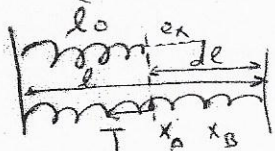 l₀ eₓ
dl
l
T x_A x_B